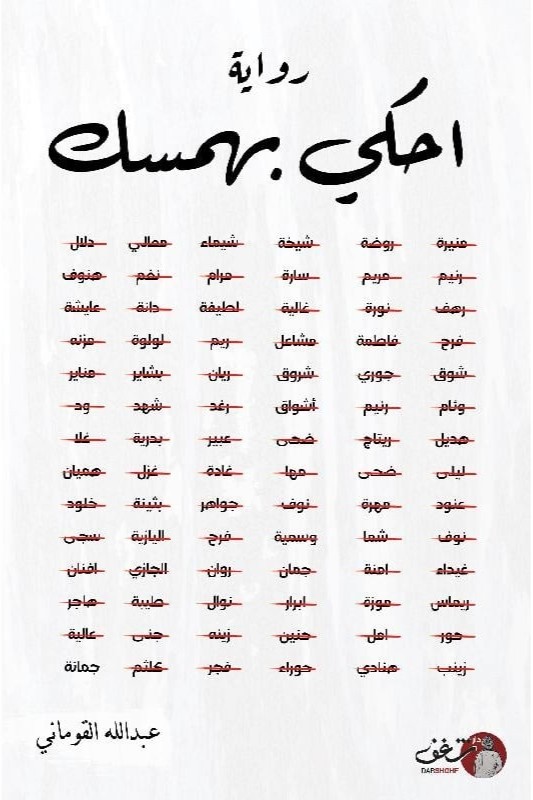 رواية
احكي بهمسك
منيرة روضة شيخة شيماء معالي دلال
رنيم مريم سارة مرام نغم هنوف
رهف نورة غالية لطيفة دانة عايشة
فرح فاطمة مشاعل ريم لولوة مزنه
شوق جوري شروق ريان بشاير مناير
وئام رنيم أشواق رغد شهد ود
هديل ريتاج ضحى عبير بدرية علا
ليلى ضحى مها غادة غزل هميان
عنود مهرة نوف جواهر بثينة خلود
نوف شما وسمية فرح اليازية سجى
غيداء امنة جمان روان الجازي افنان
ريماس موزة ابرار نوال طيبة هاجر
حور امل حنين زينه جنى عالية
زينب هنادي حوراء فجر كلثم جمانة
عبدالله القوماني
دار شغف
DARSHGHF